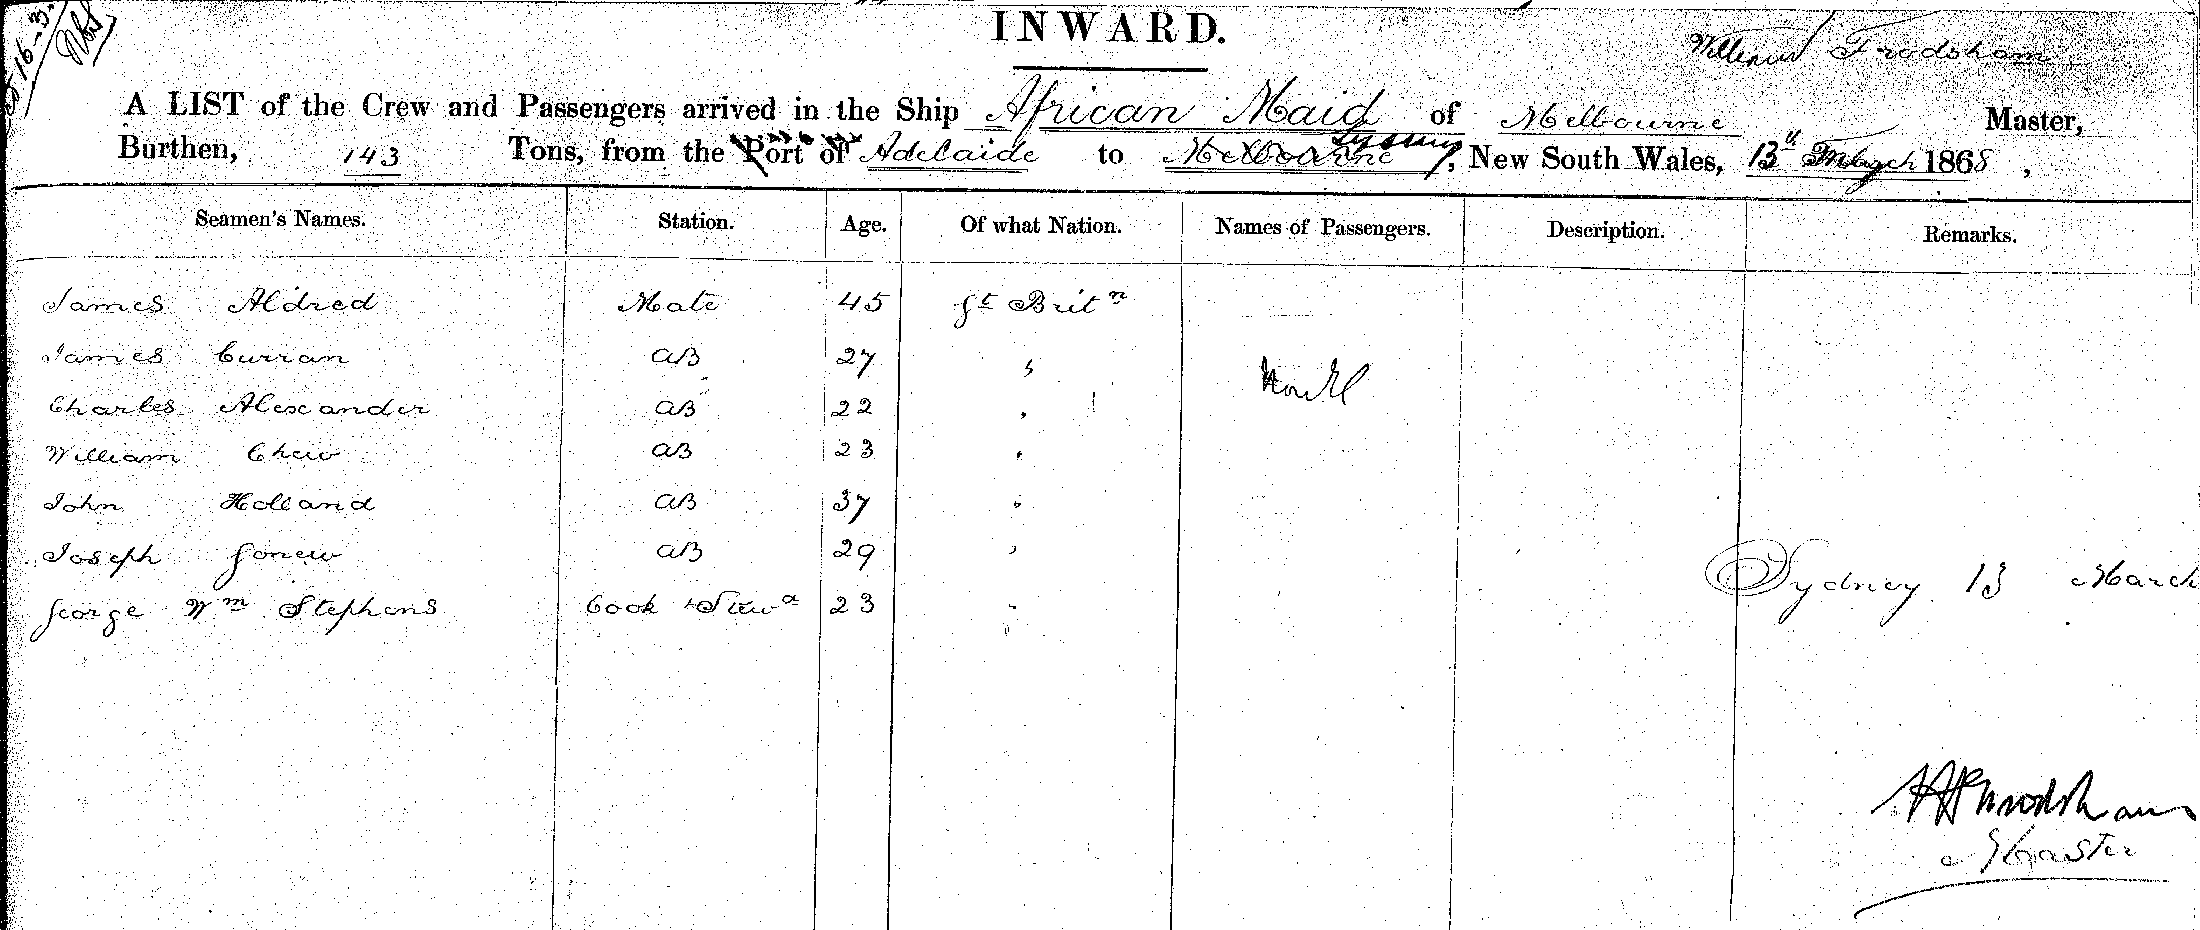 INWARD.
William Frodsham
A LIST of the Crew and Passengers arrived in the Ship African Maid of Melbourne Master,
Burthen, 143 Tons, from the Port of Adelaide to Melbourne Sydney, New South Wales, 13th March 1868,
Seamen's Names. Station. Age. Of what Nation. Names of Passengers. Description. Remarks.
James Aldred Mate 45 Gt Britn
James Curran AB 27 "
Charles Alexander AB 22 "
William Chew AB 23 "
John Holland AB 37 "
Joseph Gonew AB 29 "
George Wm Stephens Cook & Stewd 23 "
Sydney 13 March
Frodsham
Master